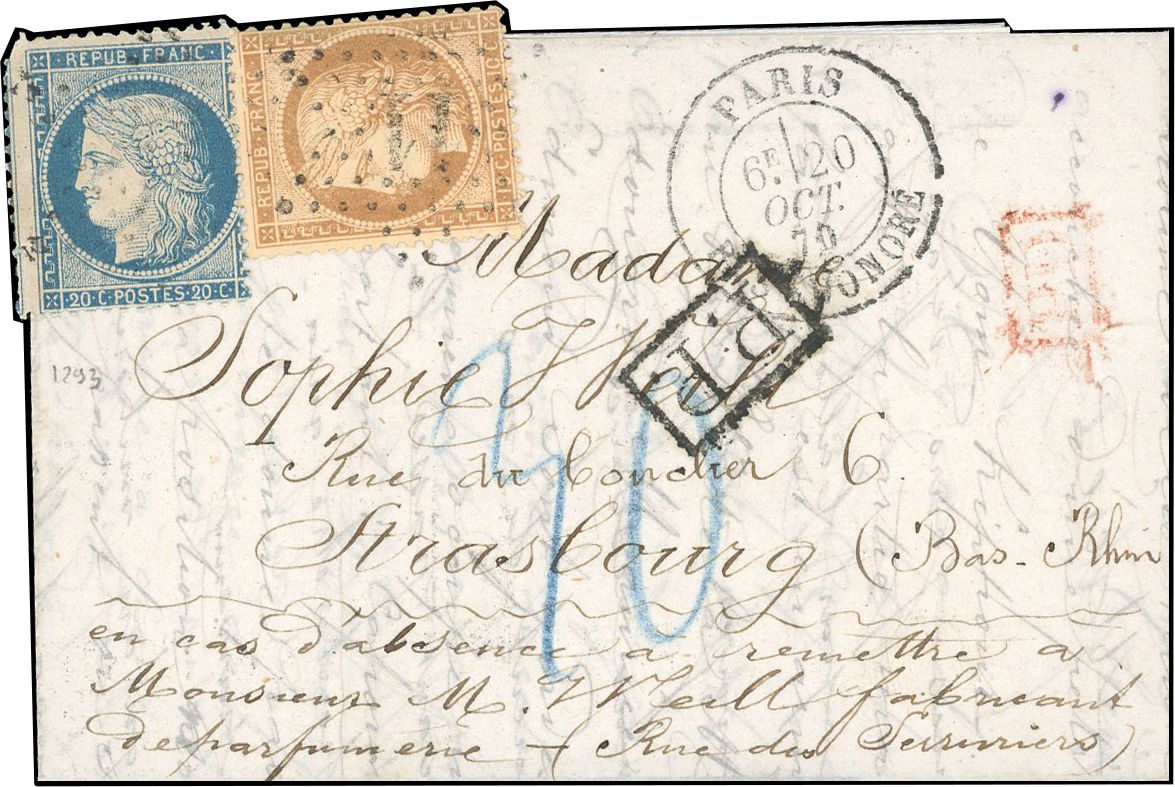 REPUB. FRANC.
20·C·POSTES·20·C·
REPUB. FRANC.
C. POSTES
PARIS
6E 20
OCT.
70
HONORÉ
P.P.
PD
Madame
Sophie Weill
Rue du Coudier 6
Strasbourg (Bas-Rhin
en cas d'absence a remettre a
Monsieur M. Weill fabricant
de parfumerie – (Rue des Serruriers)
1293
30